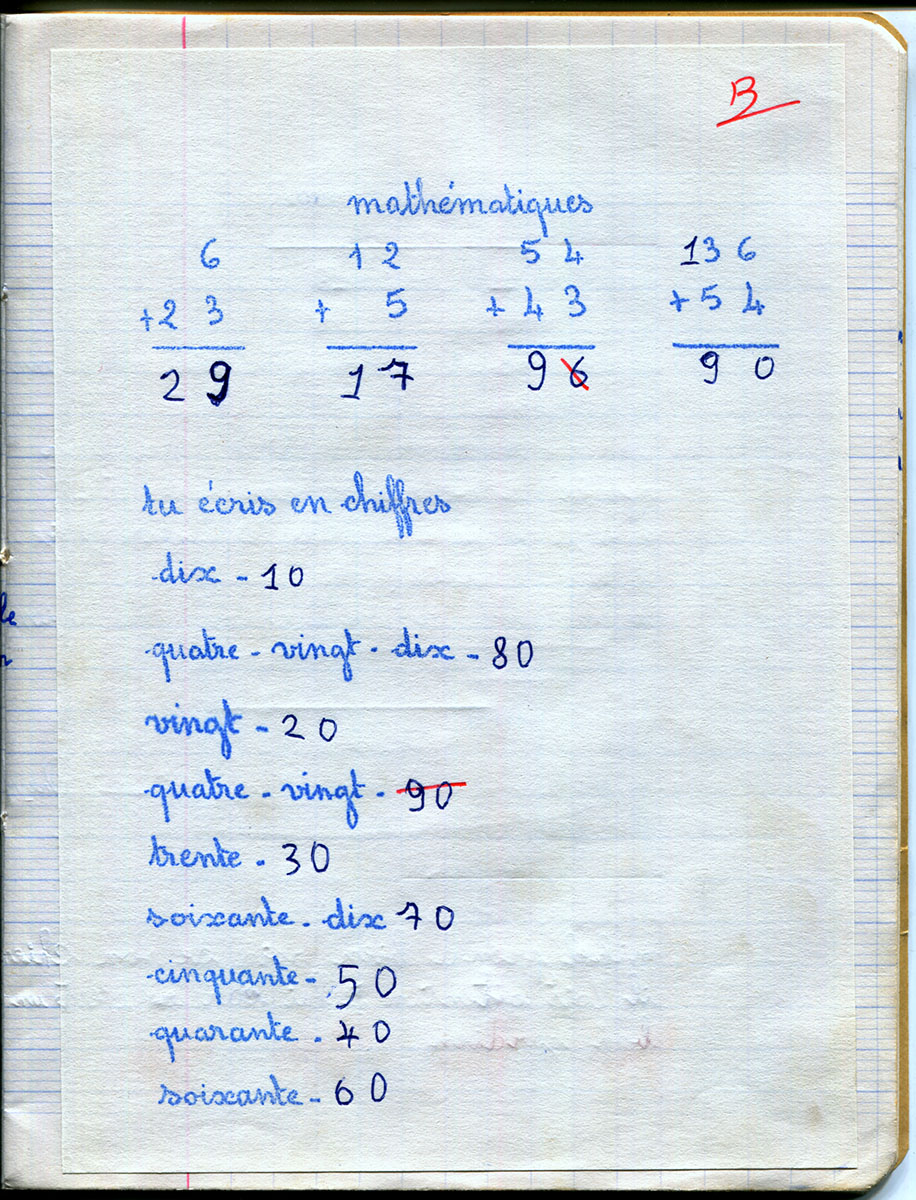 B
mathématiques
6 12 54 136
+23 + 5 +43 +54
29 17 96 90
tu écris en chiffres
dix - 10
quatre - vingt - dix - 80
vingt - 20
quatre - vingt - 90
trente - 30
soixante - dix 70
cinquante - 50
quarante - 40
soixante - 60
le